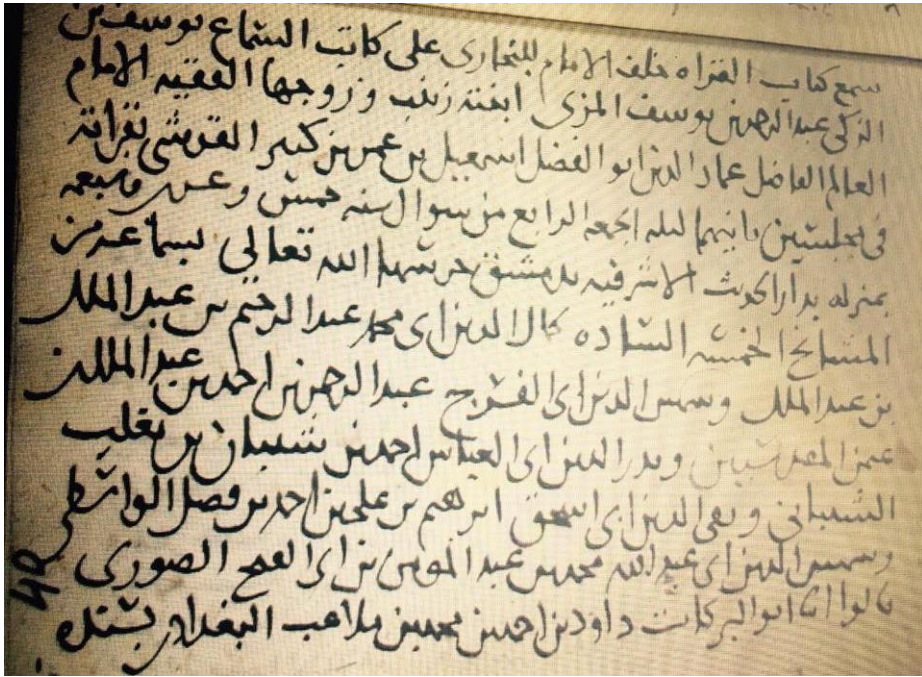 سمع كتاب القراه خلف الامام للبخارى على كاتب السماع يوسف بن
الزكى عبد الرحمن بن يوسف المزى ابنته زينب وزوجها الفقيه الامام
العالم الفاضل عماد الدين ابو الفضل اسمعيل بن عمر بن كثير القرشى بقراته
فى مجلسين ثانيهما ليله الجمعه الرابع من شوال سنه خمس وعشرين وسبعمه
بمنزله بدار الحديث الاشرفيه بدمشق حرسها الله تعالى بسماعه من
المشايخ الخمسه الساده كمال الدين ابى محمد عبد الرحيم بن عبد الملك
بن عبد الملك وشمس الدين ابى الفرج عبد الرحمن بن احمد بن عبد الملك
المقدسيين وبدر الدين ابى العباس احمد بن شيبان بن تغلب
الشيبانى وتقى الدين ابى اسحق ابرهيم بن على بن احمد بن فضل الواسطى
وشمس الدين ابى عبد الله محمد بن عبد المومن بن ابى الفتح الصورى
قالوا انا ابو البركات داود بن احمد بن محمد بن ملاعب البغدادى بسنده